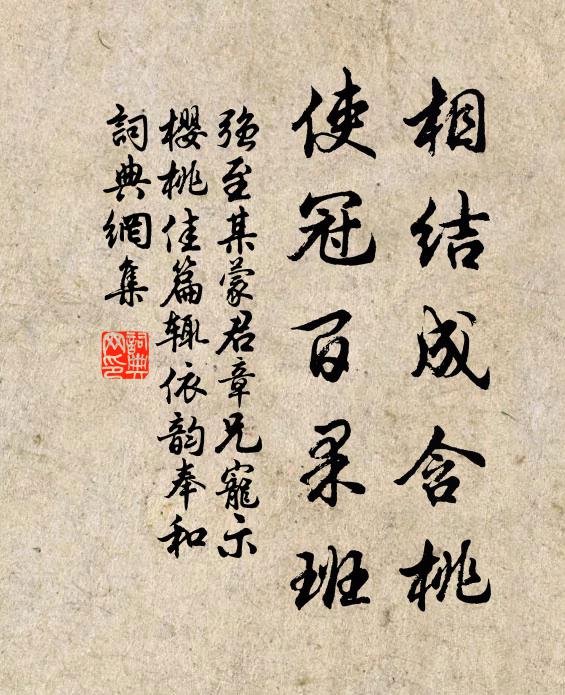 相结成含桃
使冠百果班
强至某蒙君章兄寵示
櫻桃佳篇輒依韵奉和
詞典網集
詞典
网印